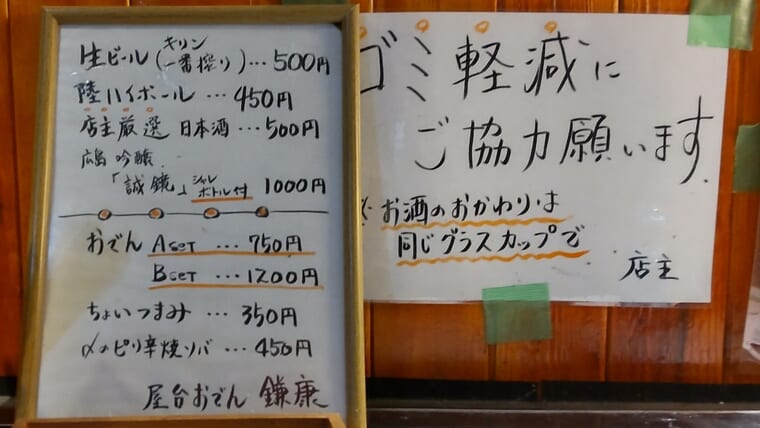 生ビール(キリン一番搾り)…500円
陸ハイボール…450円
店主厳選 日本酒…500円
広島 吟醸
「誠鏡」シャレボトル付 1000円
おでん Aset…750円
Bset…1200円
ちょいつまみ…350円
〆のピリ辛焼ソバ…450円
屋台おでん 鎌康
ゴミ軽減に
ご協力願います.
※お酒のおかわりは
同じグラスカップで
店主